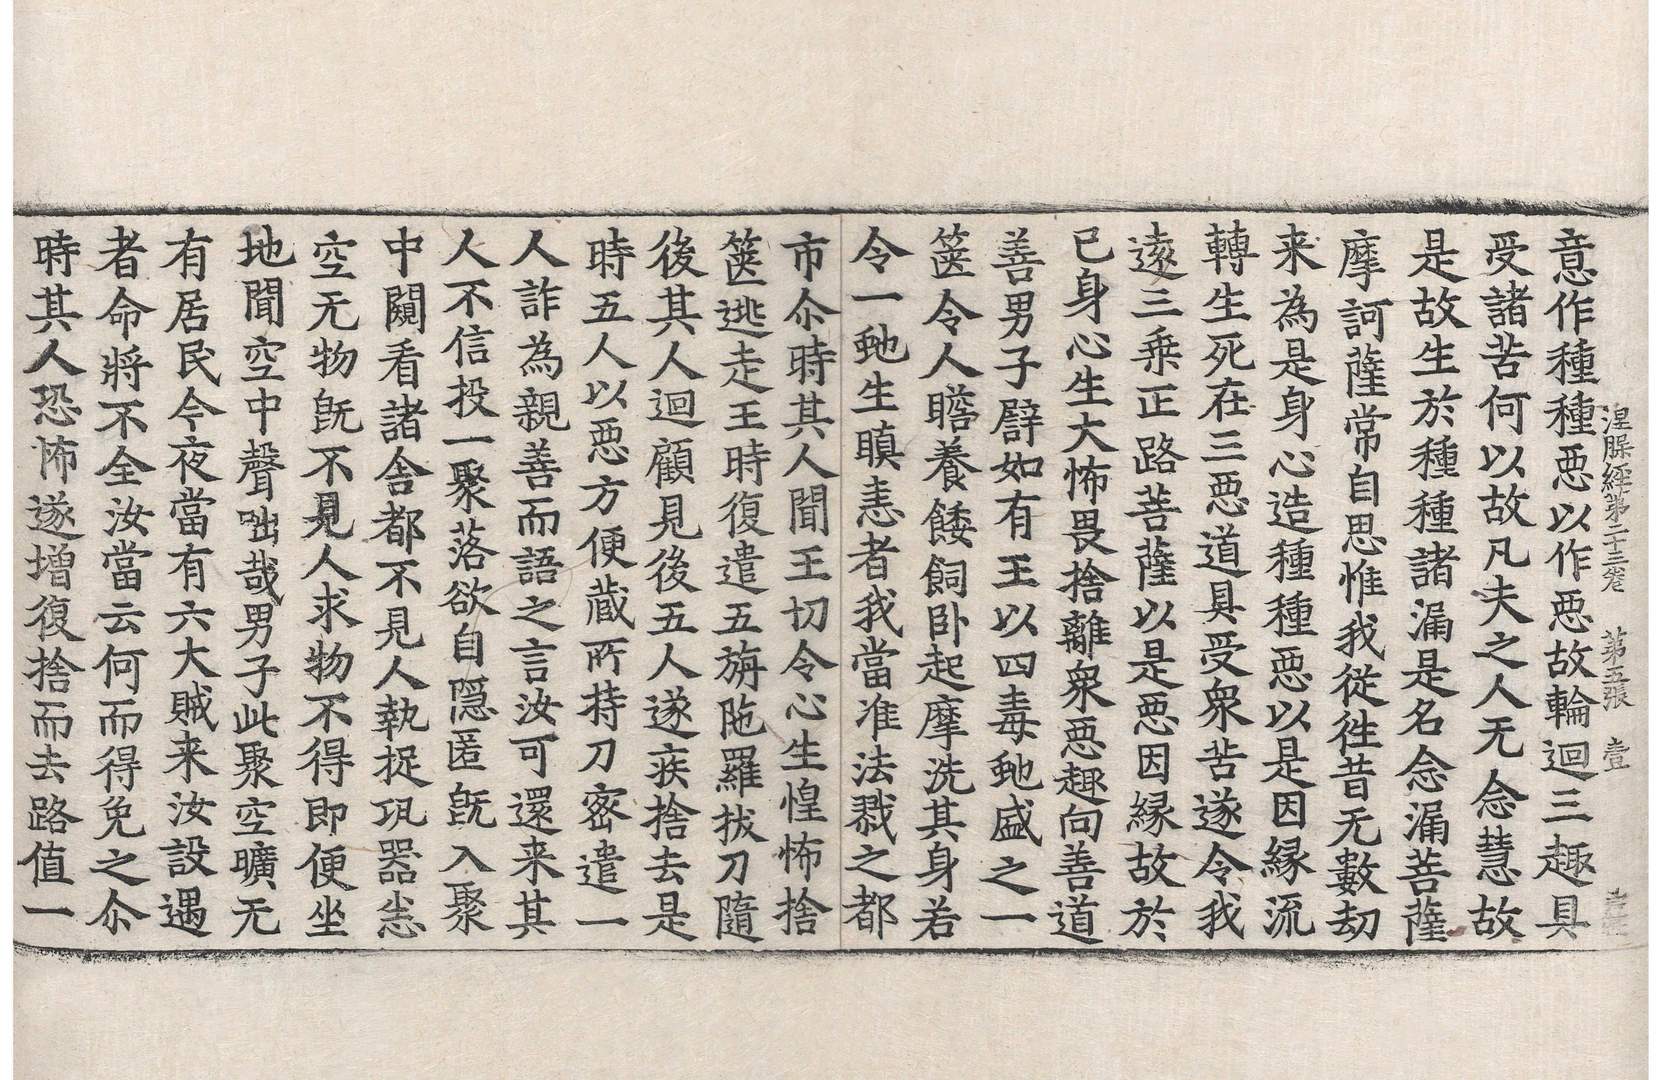 涅槃經第二十三卷　第五張　壹
意作種種惡以作惡故輪迴三趣具
受諸苦何以故凡夫之人无念慧故
是故生於種種諸漏是名念漏菩薩
摩訶薩常自思惟我従徃昔无數劫
来為是身心造種種惡以是因緣流
轉生死在三惡道具受衆苦遂令我
遠三乗正路菩薩以是惡因緣故於
已身心生大怖畏捨離衆惡趣向善道
善男子譬如有王以四毒虵盛之一
篋令人瞻養餧飼卧起摩洗其身若
令一虵生瞋恚者我當准法戮之都
市尒時其人聞王切令心生惶怖捨
篋逃走王時復遣五旃陁羅拔刀隨
後其人迴顧見後五人遂疾捨去是
時五人以惡方便藏所持刀密遣一
人詐為親善而語之言汝可還来其
人不信投一聚落欲自隱匿旣入聚
中闚看諸舎都不見人執捉瓨器悉
空无物旣不見人求物不得即便坐
地聞空中聲咄哉男子此聚空曠无
有居民今夜當有六大賊来汝設遇
者命將不全汝當云何而得免之尒
時其人恐怖遂增復捨而去路值一